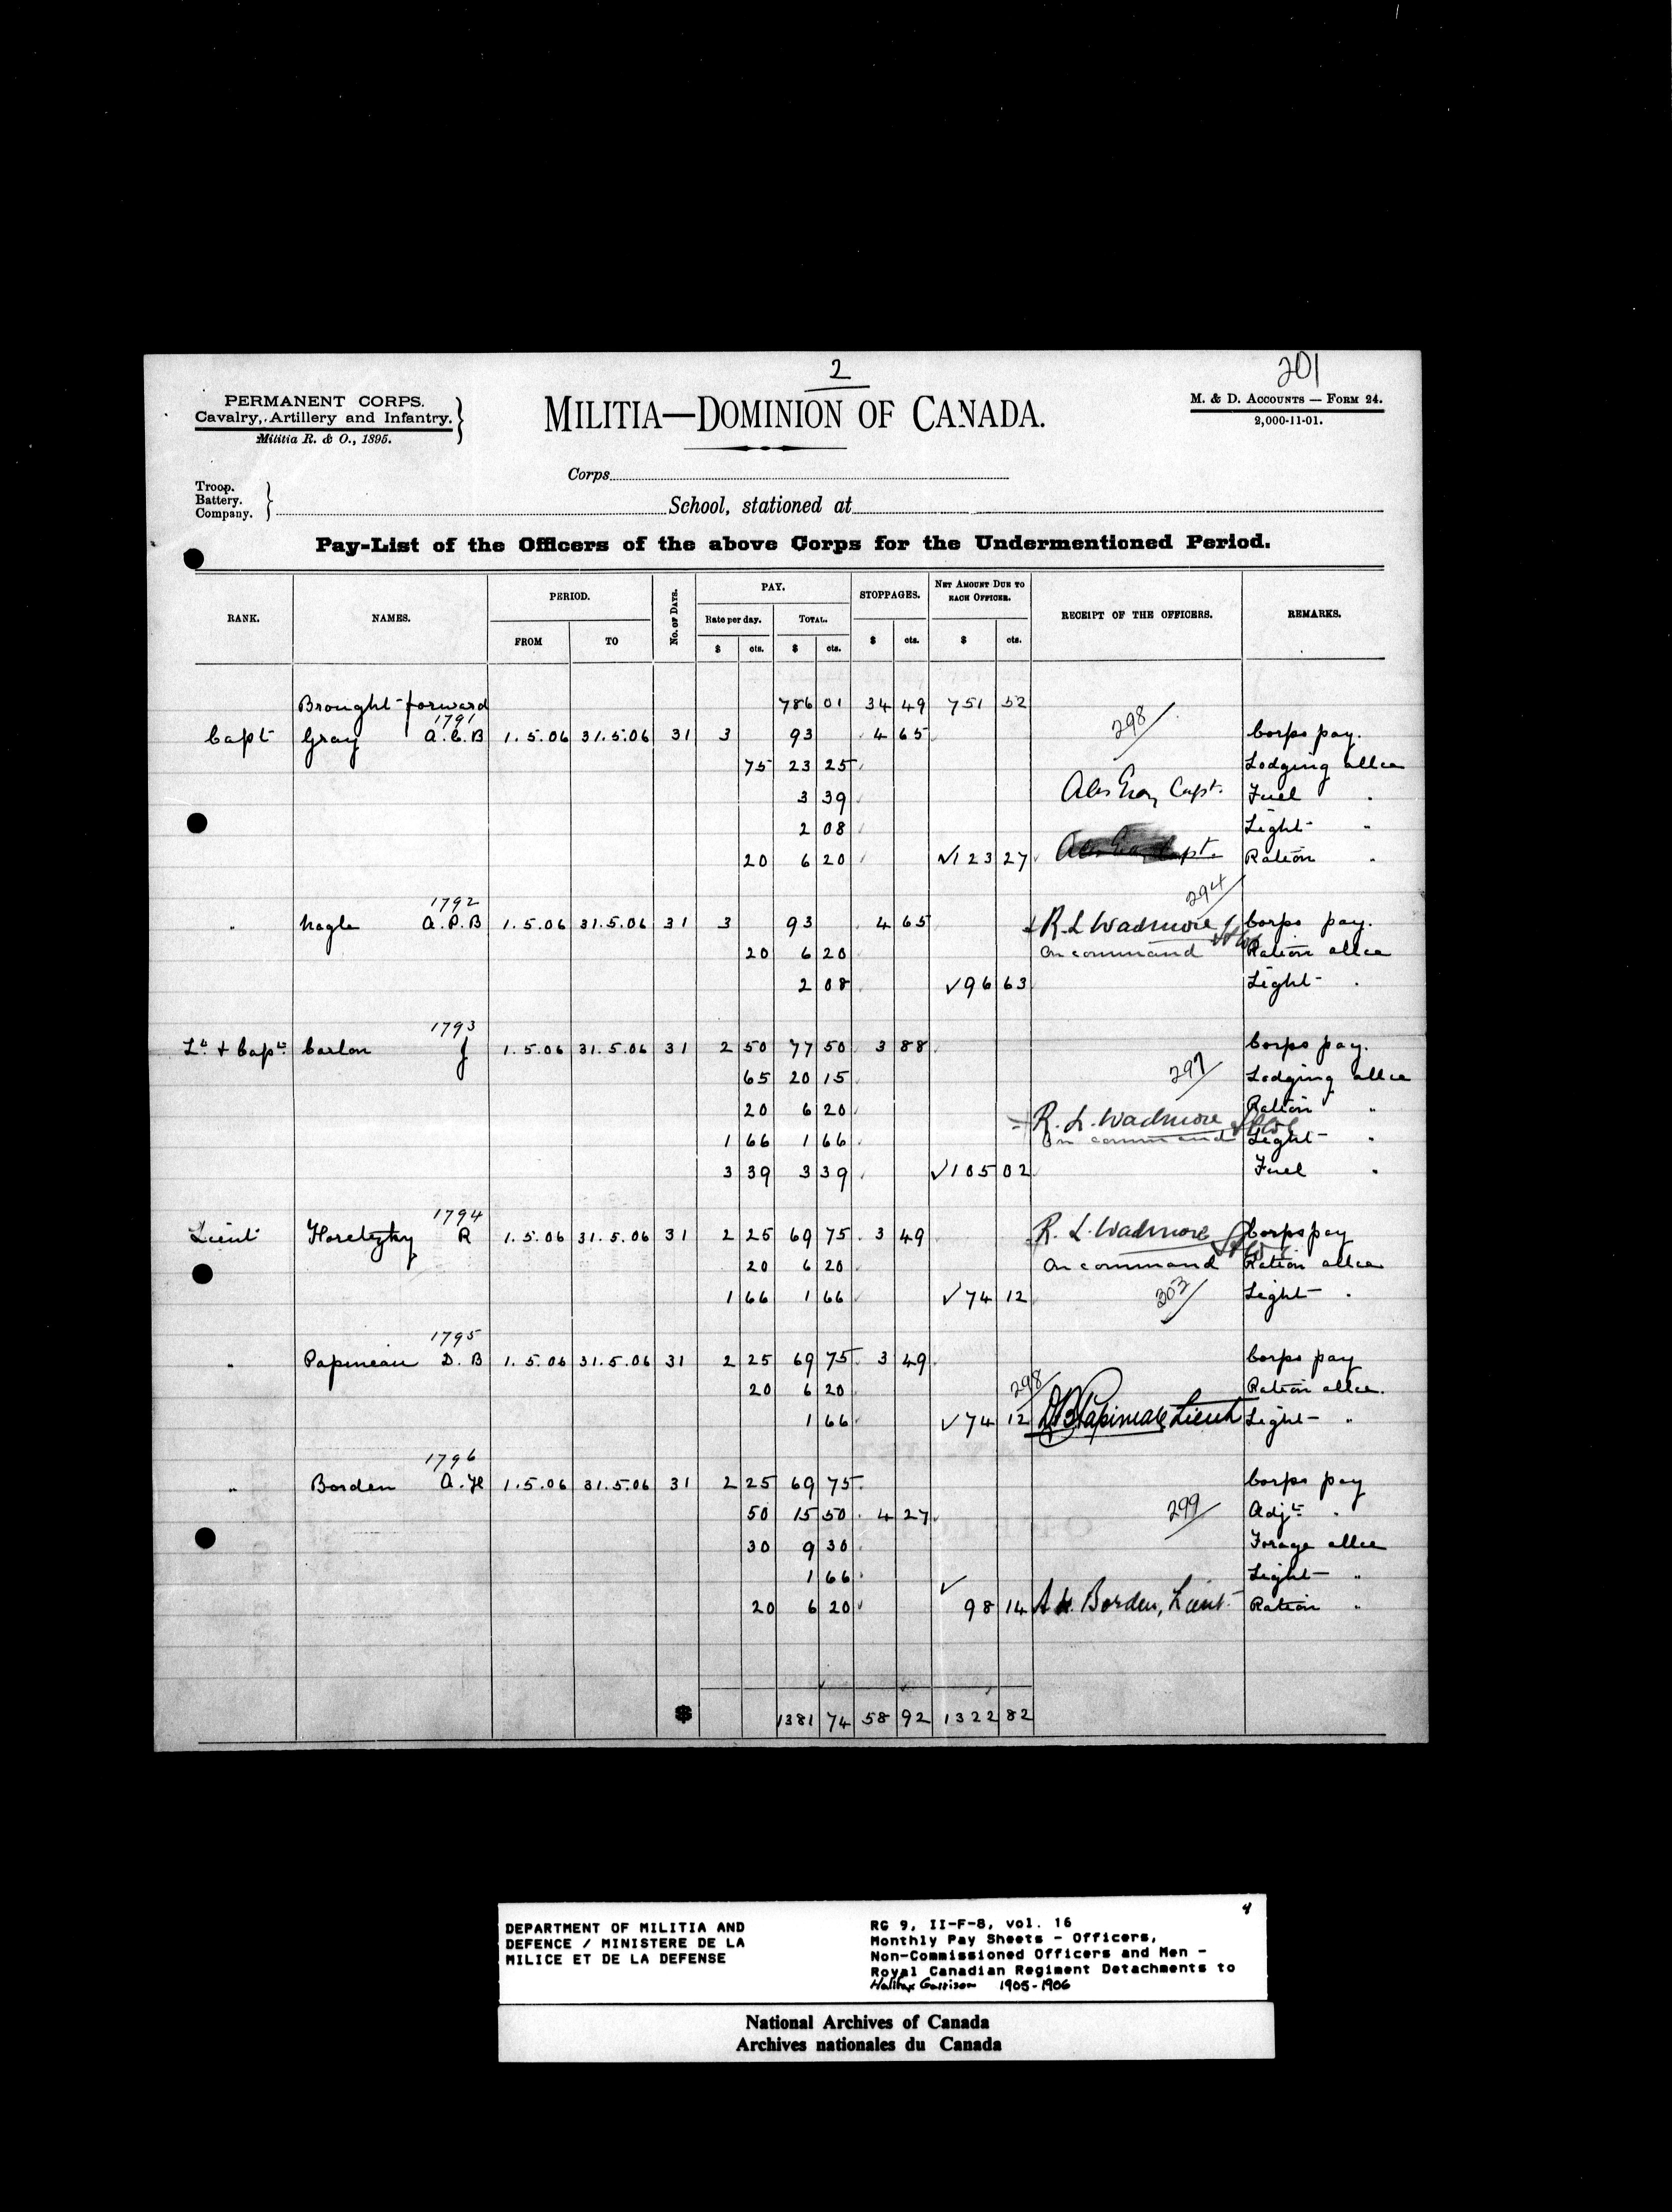 2
201
PERMANENT CORPS.
Cavalry, Artillery and Infantry.
Militia R. & O., 1895.
MILITIA—DOMINION OF CANADA.
M. & D. ACCOUNTS — FORM 24.
2,000-11-01.
Corps
Troop.
Battery.
Company.
School, stationed at
Pay-List of the Officers of the above Corps for the Undermentioned Period.
RANK. NAMES. PERIOD. FROM TO No. OF DAYS. PAY. Rate per day. $ cts. TOTAL. $ cts. STOPPAGES. $ cts. NET AMOUNT DUE TO EACH OFFICER. $ cts. RECEIPT OF THE OFFICERS. REMARKS.
Brought forward 786 01 34 49 751 52
1791 298
Capt Gray A.C.B 1.5.06 31.5.06 31 3 93 4 65 Corps pay.
75 23 25 Lodging allce
3 39 Capt. Fuel "
2 08 Light "
20 6 20 ✓123 27 Capt. Ration "
1792 294
" Nagle A.P.B 1.5.06 31.5.06 31 3 93 4 65 R.L Wadmore Corps pay.
20 6 20 On command Ration allce
2 08 ✓96 63 Light "
1793
Lt. + Capt. Carlon J 1.5.06 31.5.06 31 2 50 77 50 3 88 Corps pay.
65 20 15 297 Lodging allce
20 6 20 R. L. Wadmore Ration "
1 66 1 66 On command Light "
3 39 3 39 ✓105 02 Fuel "
1794
Lieut Horetzky R 1.5.06 31.5.06 31 2 25 69 75 3 49 R. L. Wadmore Corps pay
20 6 20 On command Ration allce
1 66 1 66 ✓74 12 303 Light "
1795
" Papineau D.B 1.5.06 31.5.06 31 2 25 69 75 3 49 Corps pay
20 6 20 298 Ration allce.
1 66 ✓74 12 D B Papineau Lieut Light "
1796
" Borden A.H 1.5.06 31.5.06 31 2 25 69 75 Corps pay
50 15 50 4 27 299 Adjt. "
30 9 30 Forage allce
1 66 Light "
20 6 20 ✓98 14 A H. Borden, Lieut. Ration "
$ 1381 74 58 92 1322 82
4
DEPARTMENT OF MILITIA AND
DEFENCE / MINISTERE DE LA
MILICE ET DE LA DEFENSE
RG 9, II-F-8, vol. 16
Monthly Pay Sheets - Officers,
Non-Commissioned Officers and Men -
Royal Canadian Regiment Detachments to
Halifax Garrison 1905-1906
National Archives of Canada
Archives nationales du Canada